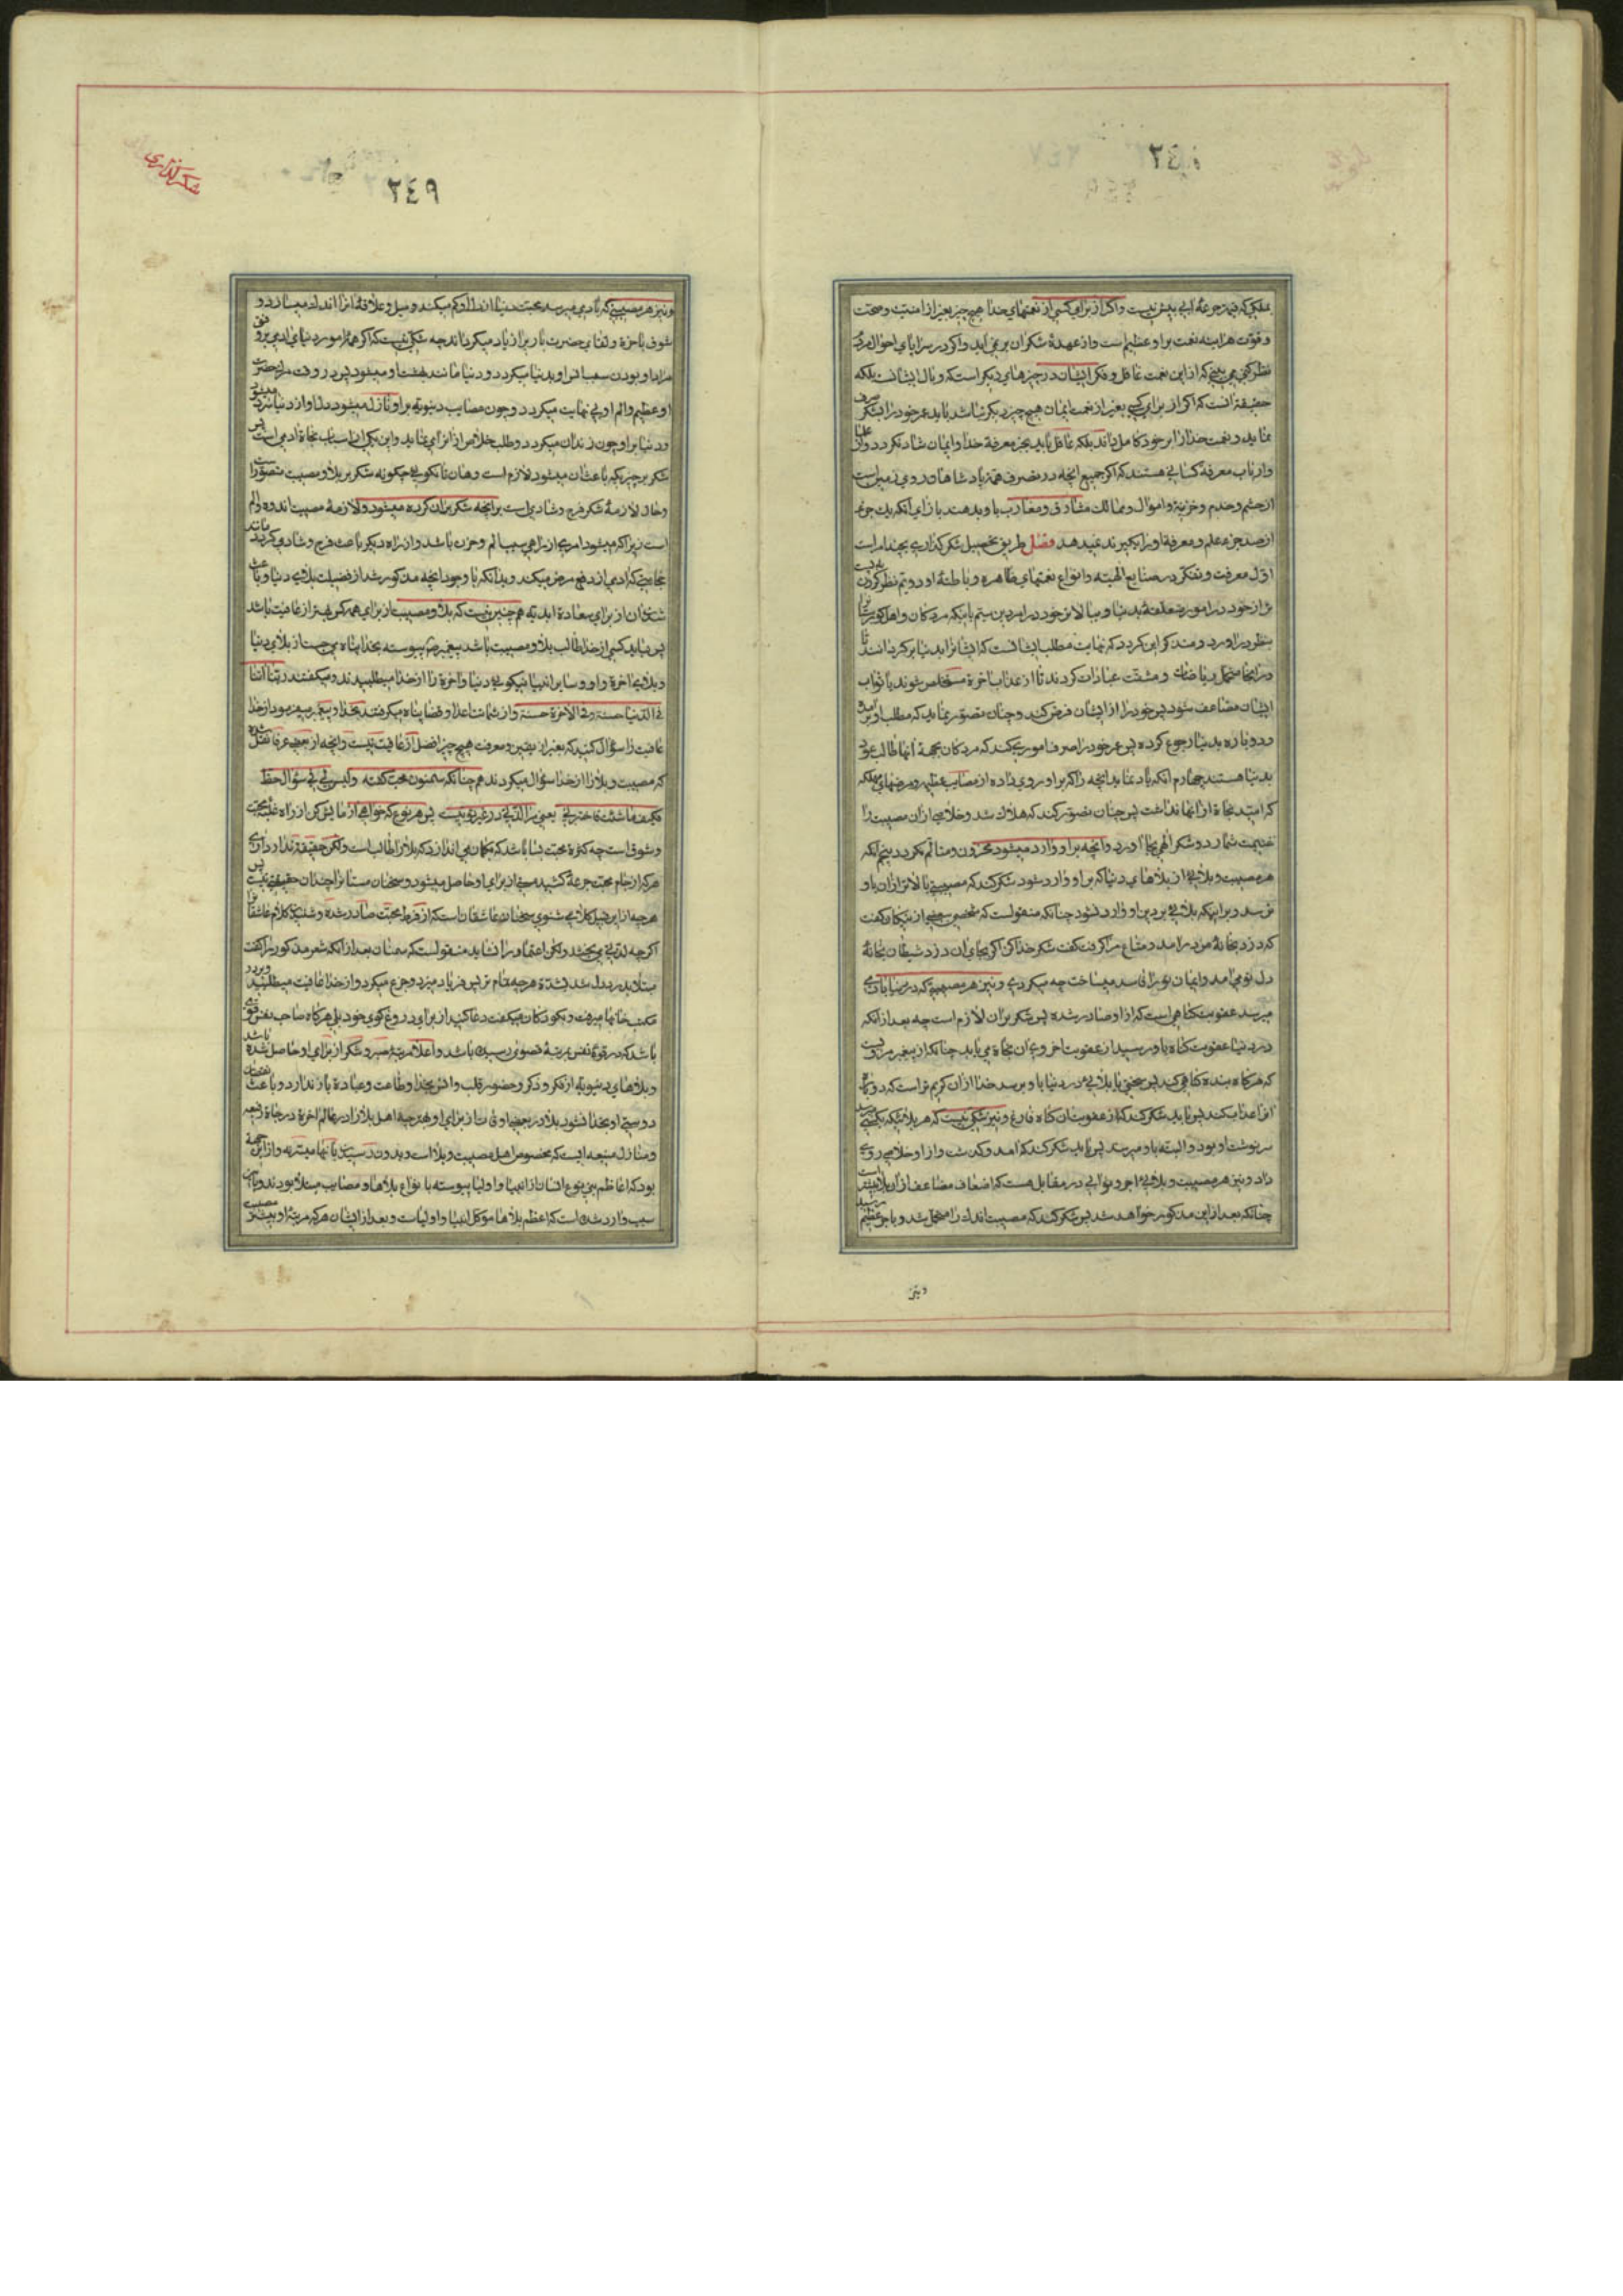 ٢٤٨
بملکی که قیمت جرعهٔ ابی بیش نیست واکر از برای کسی از نعمتهای خدا هیچ چیز بغیر از امنیت وصحت
وقوت هراینه نعمت بر او عظیم است واز عهدهٔ شکر ان بر نمی اید واکر در سراپای احوال مردم
نظر کنی می بینی که از این نعمت غافل وفکر ایشان در چیزهای دیکر است که وبال ایشانست بلکه
حقیقة انست که اکر از برای کسی بغیر از نعمت ایمان هیچ چیز دیکر نباشد باید عمر خود را بشکر صرف
نماید ونعمت خدا را بر خود کامل داند بلکه عاقل باید بجز معرفة خدا وایمان شاد نکردد واز علما
وارباب معرفة کسانی هستند که اکر جمیع انچه در تصرف همهٔ پادشاهان روی زمین است
از حشم وخدم وخزینه واموال وممالک مشارق ومغارب باو بدهند بازای انکه یک جزء
از صد جزء علم ومعرفة او را بکیرند نمیدهد فصل طریق تحصیل شکر کذاری بچند امر است
اول معرفت وتفکر در صنایع الهیه وانواع نعمتهای ظاهره وباطنهٔ او دویم نظر کردن به پست
تر از خود در امور متعلقهٔ بدنیا وببالاتر خود در امر دین سیم بانیکه مردکان واهل کورستان را
بنظر در اورد ومتذکر این کردد که نهایت مطلب ایشانست که ایشانرا بدنیا بر کردانند تا
در اینجا متحمل ریاضات ومشقت عبادات کردند تا از عذاب اخرة مستخلص شوند یا ثواب
ایشان مضاعف شود پس خود را از ایشان فرض کند وچنان تصور نماید که مطلب او بر امده
ودوباره بدنیا رجوع کرده پس عمر خود را صرف اموری کند که مردکان بجهة انها طالب عود
بدنیا هستند چهارم انکه یاد نماید انچه را که بر او روی داده از مصایب عظیمه ومرضهای مهلکه
که امید نجاة از انها نداشت پس چنان تصور کند که هلاک شد وخلاصی از ان مصیبت را
غنیمت شمارد وشکر الهی بجا اورد وانچه بر او وارد میشود محزون ومتالم نکردد پنجم انکه
هر مصیبت وبلائی از بلاهای دنیا که بر او وارد شود شکر کند که مصیبتی بالاتر از ان باو
نرسد وبر اینکه بلائی بر دین او وارد نشود چنانکه منقولست که شخصی بیکی از نیکان کفت
که دزد بخانهٔ من در امد ومتاع مرا کرفت کفت شکر خدا کن اکر بجای ان دزد شیطان بخانهٔ
دل تو می امد وایمان تو را فاسد میساخت چه میکردی ونیز هر مصیبتی که در دنیا بادمی
میرسد عقوبت کناهی است که از او صادر شده پس شکر بر ان لازم است چه بعد از انکه
در دنیا عقوبت کناه باو رسید از عقوبت اخروی ان نجاة می یابد چنانکه از پیغمبر مرویست
که هر کاه بنده کناهی کند پس سختی یا بلائی در دنیا باو برسد خدا از ان کریم تر است که دوباره
او را عذاب کند پس باید شکر کند که از عقوبت ان کناه فارغ ونیز شکی نیست که هر بلائیکه بکسی رسید
سرنوشت او بود والبته باو میرسد پس باید شکر کند که امد وکذشت واز او خلاصی روی
داد ونیز هر مصیبت وبلائی اجر وثوابی در مقابل هست که اضعاف مضاعف از ان بلا بیشتر است
چنانکه بعد از این مذکور خواهد شد پس شکر کند که مصیبت اندک را متحمل شد وباجر عظیم رسید
ونیز
شکرکذاری
٢٤٩
ونیز هر مصیبتی که بادمی میرسد محبت دنیا را کم میکند ومیل وعلاقهٔ انرا اندک میسازد و
شوق باخرة ولقای حضرت باریرا زیاد میکرداند چه شکی نیست که اکر همهٔ امور دنیای ادمی بر وفق
مراد او بودن سبب انس او بدنیا میکردد ودنیا مانند بهشت او میشود پس در وقت مردن حسرت
او عظیم والم او بی نهایت میکردد وچون مصایب دنیویه بر او نازل میشود دل او از دنیا سرد میشود
ودنیا بر او چون زندان میکردد وطلب خلاص از ان می نماید واین یکی از اسباب نجاة ادمی است پس
شکر بر چیزیکه باعث ان میشود لازم است وهان تا نکوئی چکونه شکر بر بلا ومصیبت متصور است
وحال لازمهٔ شکر فرح وشادی است بر انچه شکر بر ان کرده میشود ولازمهٔ مصیبت اندوه والم
است زیرا که میشود امری از راهی سبب الم وحزن باشد واز راه دیکر باعث فرح وشادی کردد مانند
حجامتی که ادمی از دفع مرض میکند وبدانکه با وجود انچه مذکور شد از فضیلت بلای دنیا وباعث
شدن ان از برای سعادة ابدیه هم چنین نیست که بلا ومصیبت از برای همه کس بهتر از عافیت باشد
پس نباید کسی از خدا طالب بلا ومصیبت باشد پیغمبر ص پیوسته بخدا پناه می جست از بلای دنیا
وبلای اخرة واو وسایر انبیا نیکوئی دنیا واخرة را از خدا میطلبیدند ومیکفتند ربنا اتنا
فی الدنیا حسنة وفی الاخرة حسنة واز شماتت اعدا وقضا پناه میکرفتند بخدا وپیغمبر میفرمود از خدا
عافیت را سؤال کنید که بغیر از یقین ومعرفت هیچ چیز افضل از عافیت نیست وانچه از بعضی عرفا نقل شده
که مصیبت وبلا را از خدا سؤال میکردند هم چنانکه سمنون محب کفته ولیس لی فی سواک حظ
فکیف ما شئت فاختبرنی یعنی مرا لذتی در غیر تو نیست پس هر نوع که خواهی ازمایش کن از راه غلبهٔ محبت
وشوق است چه کثرة محبت بسا باشد که بکمان می اندازد که بلا را طالب است ولکن حقیقة ندارد ارى
هر که از جام محبت جرعهٔ کشید مستی از برای او حاصل میشود وسخنان مستانرا چندان حقیقتی نیست پس
هر چه از این قبیل کلامی شنوی سخنان عاشقان است که از فرط محبت صادر شده وشنیدن کلام عاشقان
اکر چه لذتی می بخشد ولکن اعتماد را نشاید منقولست که سمنون بعد از انکه شعر مذکور را کفت
مبتلا بدرد شدید شد هر چه تمامتر پس فریاد میزد وجزع میکرد واز خدا عافیت میطلبید ودر
مکتب خانها میرفت وبکودکان میکفت دعا کنید از برای دروغکوی خود بلی هر کاه صاحب نفس قوی
باشد که در قوة نفس بمرتبهٔ قصوی رسیده باشد واعلا مرتبهٔ صبر وشکر از برای او حاصل شده باشد
وبلاهای دنیویه از فکر وذکر وحضور قلب وانس بخدا وطاعت وعبادة باز ندارد وباعث نقصان
دوستی او بخدا نشود بلا در بعضی اوقات از برای او بهتر چه اهل بلا را در عالم اخرة درجاة رفیعه
ومنازل منیعه ایست که مخصوص اهل مصیبت وبلا است وبدون ان رسیدن بانها میسر نه واز این جهة
بود که اعاظم بنی نوع انسان از انبیا واولیا پیوسته بانواع بلاها ومصایب مبتلا بودند وباین
سبب وارد شده است که اعظم بلاها موکل انبیا واولیاست وبعد از ایشان هر که مرتبهٔ او بیشتر مصیبت